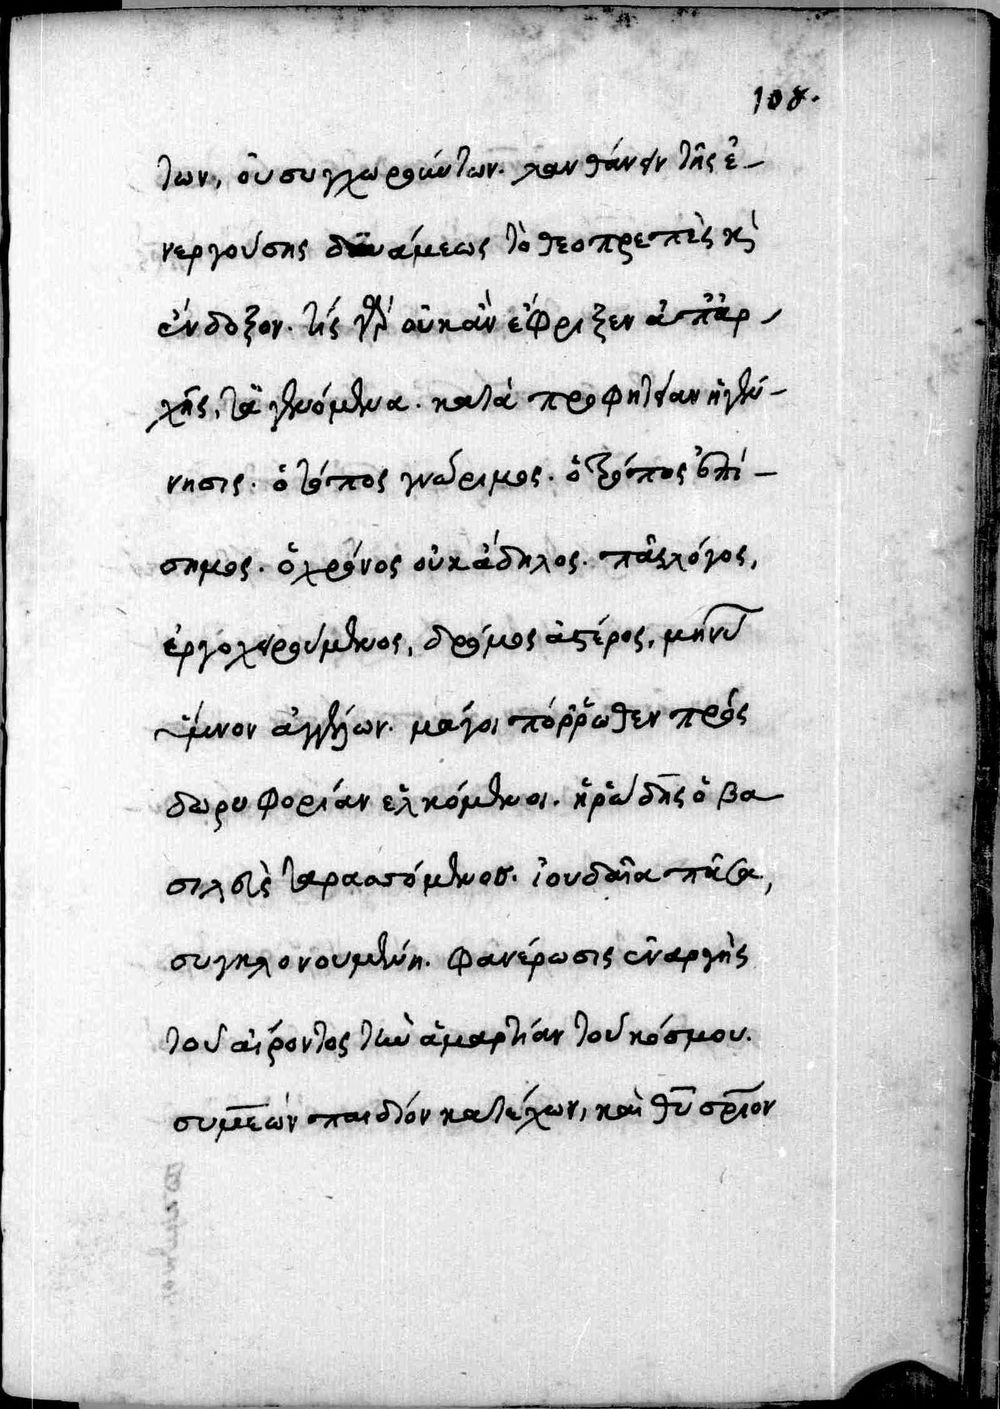 108.
των, οὐ συγχωρούντων. λανθάνειν τῆς ἐ-
νεργούσης δυνάμεως τὸ θεοπρεπὲς κὶ
ἔνδοξον. τίς γὰρ οὐκ ἂν ἔφριξεν ἀπ' ἀρ-
χῆς, τὰ γενόμενα. κατὰ προφητείαν ἡ γέν-
νησις. ὁ τόπος γνώριμος. ὁ τρόπος ἐπί-
σημος. ὁ χρόνος οὐκ ἄδηλος. πᾶς λόγος,
ἔργο χειρούμενος, δρόμος ἀστέρος, μηνύ
ὕμνον ἀγγέλων. μάγοι πόρρωθεν πρὸς
δωρυφορίαν ἑλκόμενοι. ἡρώδης ὁ βα
σιλεὺς ταρασσόμενος. ἰουδαία πᾶσα,
συγκλονουμένη. φανέρωσις ἐναργὴς
τοῦ αἴροντος τὴν ἁμαρτίαν τοῦ κόσμου.
συμεὼν παιδίον κατέχων, καὶ θῡ